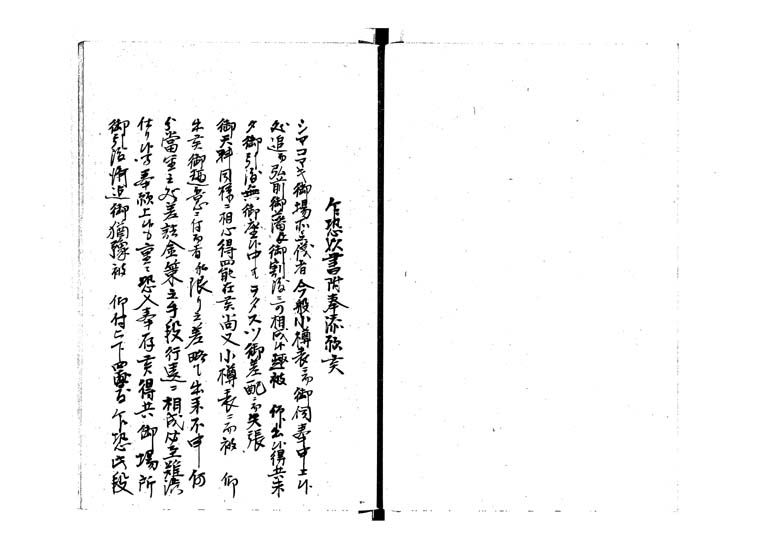 乍恐以書附奉添願候
シマコマキ御場所之儀者今般小樽表ニ而御伺奉申上候
処追而弘前御藩江御割渡ニ可相成候趣被 仰出候得共未
タ御引渡無御座候中ハヲタスツ御差配ニ而矢張
御天料同様ニ相心得罷在候尚又小樽表ニ而被 仰
出候御趣意ニ付而者 限り之差略も出来不申
当 差詰金策之手段行違ニ相成必至難渋
仕り候ニ付奉願上候も重々恐入奉存候得共御場所
御引渡済迄御猶豫被 仰付被下置度乍恐此段